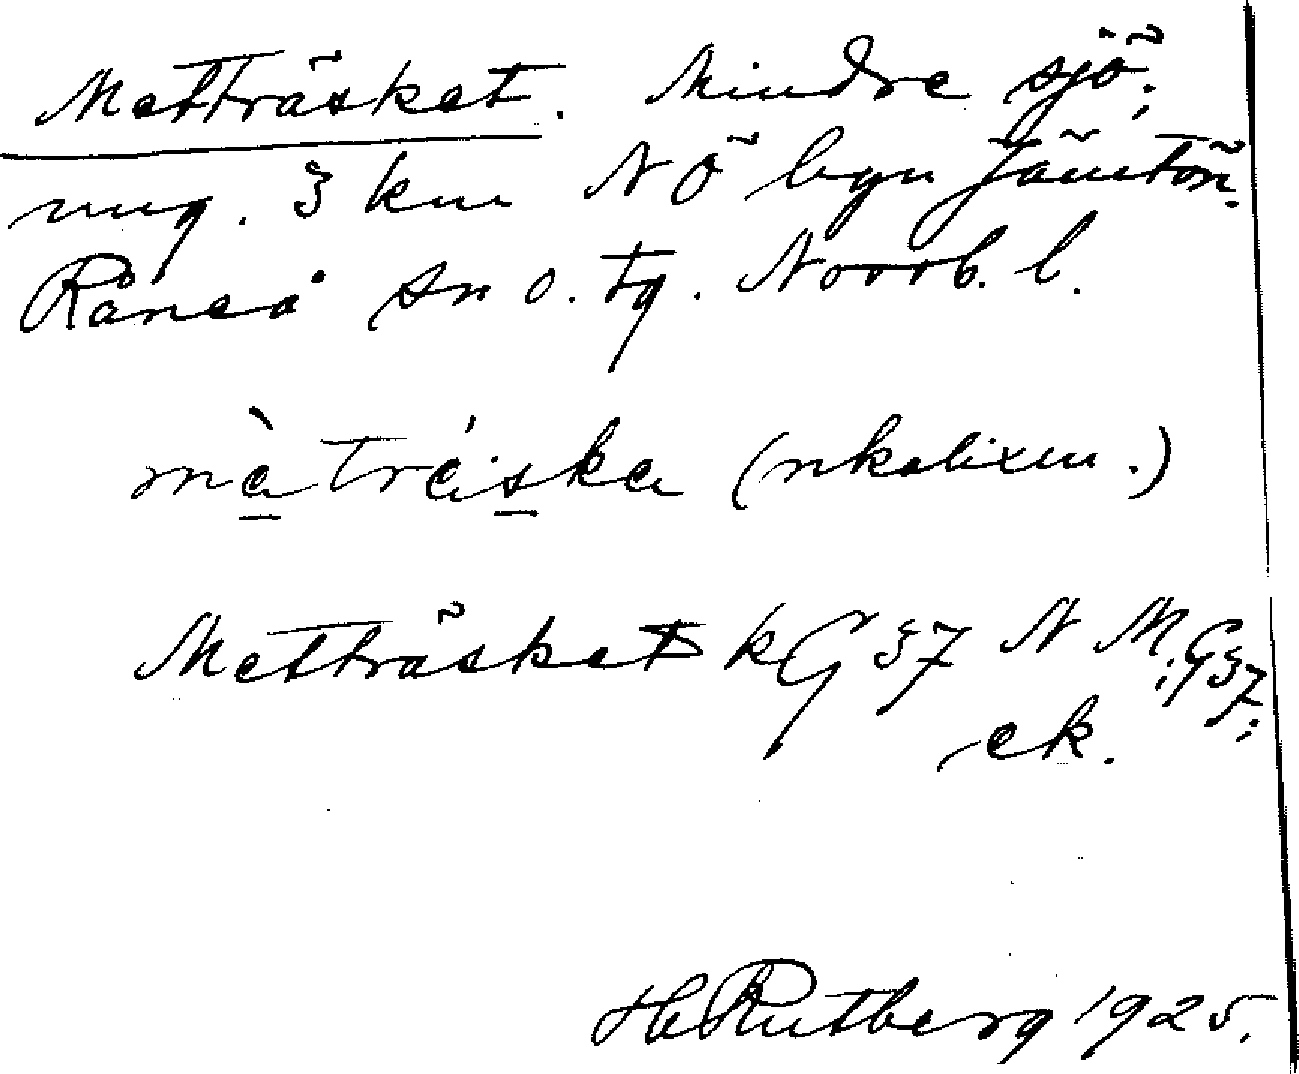 Metträsket. Mindre sjö;
ung. 3 km NÖ byn Jämtön.
Råneå sn o. tg. Norrb. l.
mà tráiska (nkalixm.)
Metträsket kG 37 N M; G37;
ek.
H Rutberg 1925.